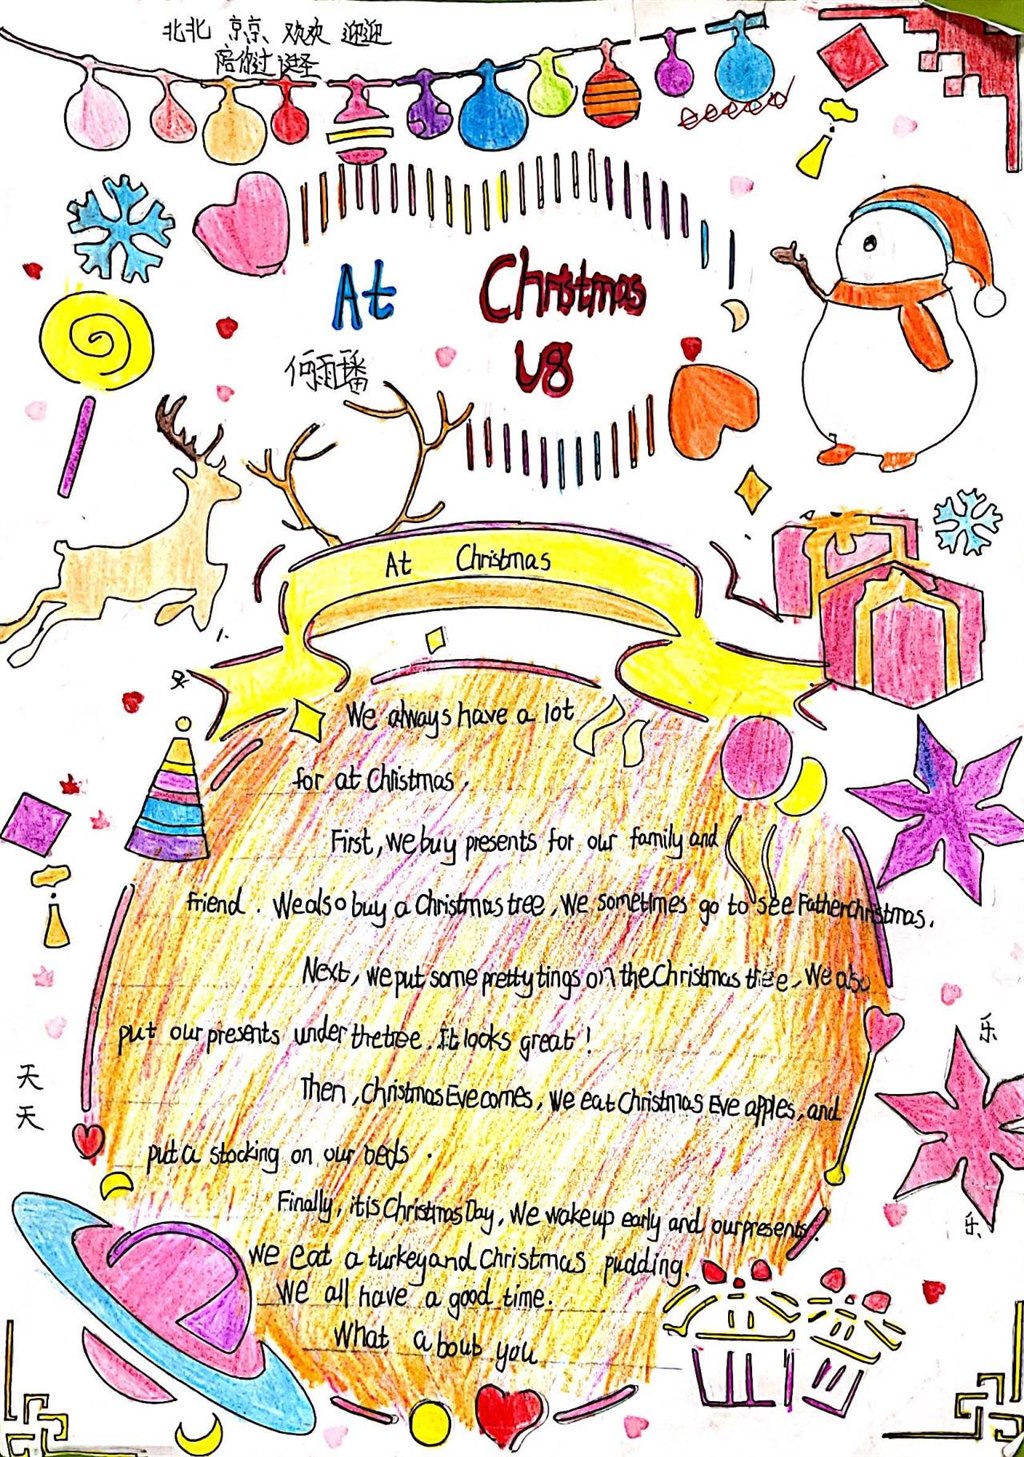 北北 京京 欢欢 迎迎
陪你过圣诞
At Christmas
U8
何雨璠
At Christmas
We always have a lot
for at Christmas.
First, We buy presents for our family and
friend. We also buy a Christmas tree, We sometimes go to see Father christmas.
Next, we put some pretty tings on the Christmas tree, We also
put our presents under the tree. It looks great!
Then, Christmas Eve comes, We eat Christmas Eve apples, and
put a stocking on our beds.
Finally, it is Christmas Day, We wake up early and our presents.
We eat a turkey and Christmas pudding.
We all have a good time.
What about you
天天
乐
乐